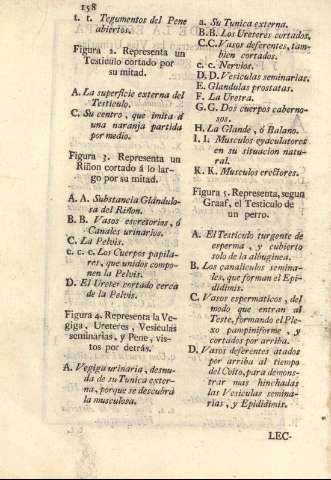 158
t. t. Tegumentos del Pene
abiertos.
Figura 2. Representa un
Testiculo cortado por
su mitad.
A. La superficie externa del
Testiculo.
C. Su centro, que imita á
una naranja partida
por medio.
Figura 3. Representa un
Riñon cortado á lo lar-
go por su mitad.
A. A. Substancia Glándulo-
sa del Riñon.
B. B. Vasos escretorios, ó
Canales urinarios.
C. La Pelvis.
c. c. c. Los Cuerpos papila-
res, que unidos compo-
nen la Pelvis.
D. El Ureter cortado cerca
de la Pelvis.
Figura 4. Representa la Ve-
giga, Ureteres, Vesiculas
seminarias, y Pene, vis-
tos por detrás.
A. Vegiga urinaria, desnu-
da de su Tunica exter-
na, porque se descubra
la musculosa.
a. Su Tunica externa.
B. B. Los Ureteres cortados.
C. C. Vasos deferentes, tam-
bien cortados.
c. c. Nervios.
D. D. Vesiculas seminarias.
E. Glandulas prostatas.
F. La Uretra.
G. G. Dos cuerpos caberno-
sos.
H. La Glande, ó Balano.
I. I. Musculos eyaculatores
en su situacion natu-
ral.
K. K. Musculos erectores.
Figura 5. Representa, segun
Graaf, el Testiculo de
un perro.
A. El Testiculo turgente de
esperma, y cubierto
solo de la albuginea.
B. Los canaliculos semina-
les, que forman el Epi-
didimis.
C. Vasos espermaticos, del
modo que entran al
Teste, formando el Ple-
xo pampiniforme, y
cortados por arriba.
D. Vasos deferentes atados
por arriba al tiempo
del Coito, para demons-
trar mas hinchadas
las Vesiculas semina-
rias, y Epididimis.
LEC-